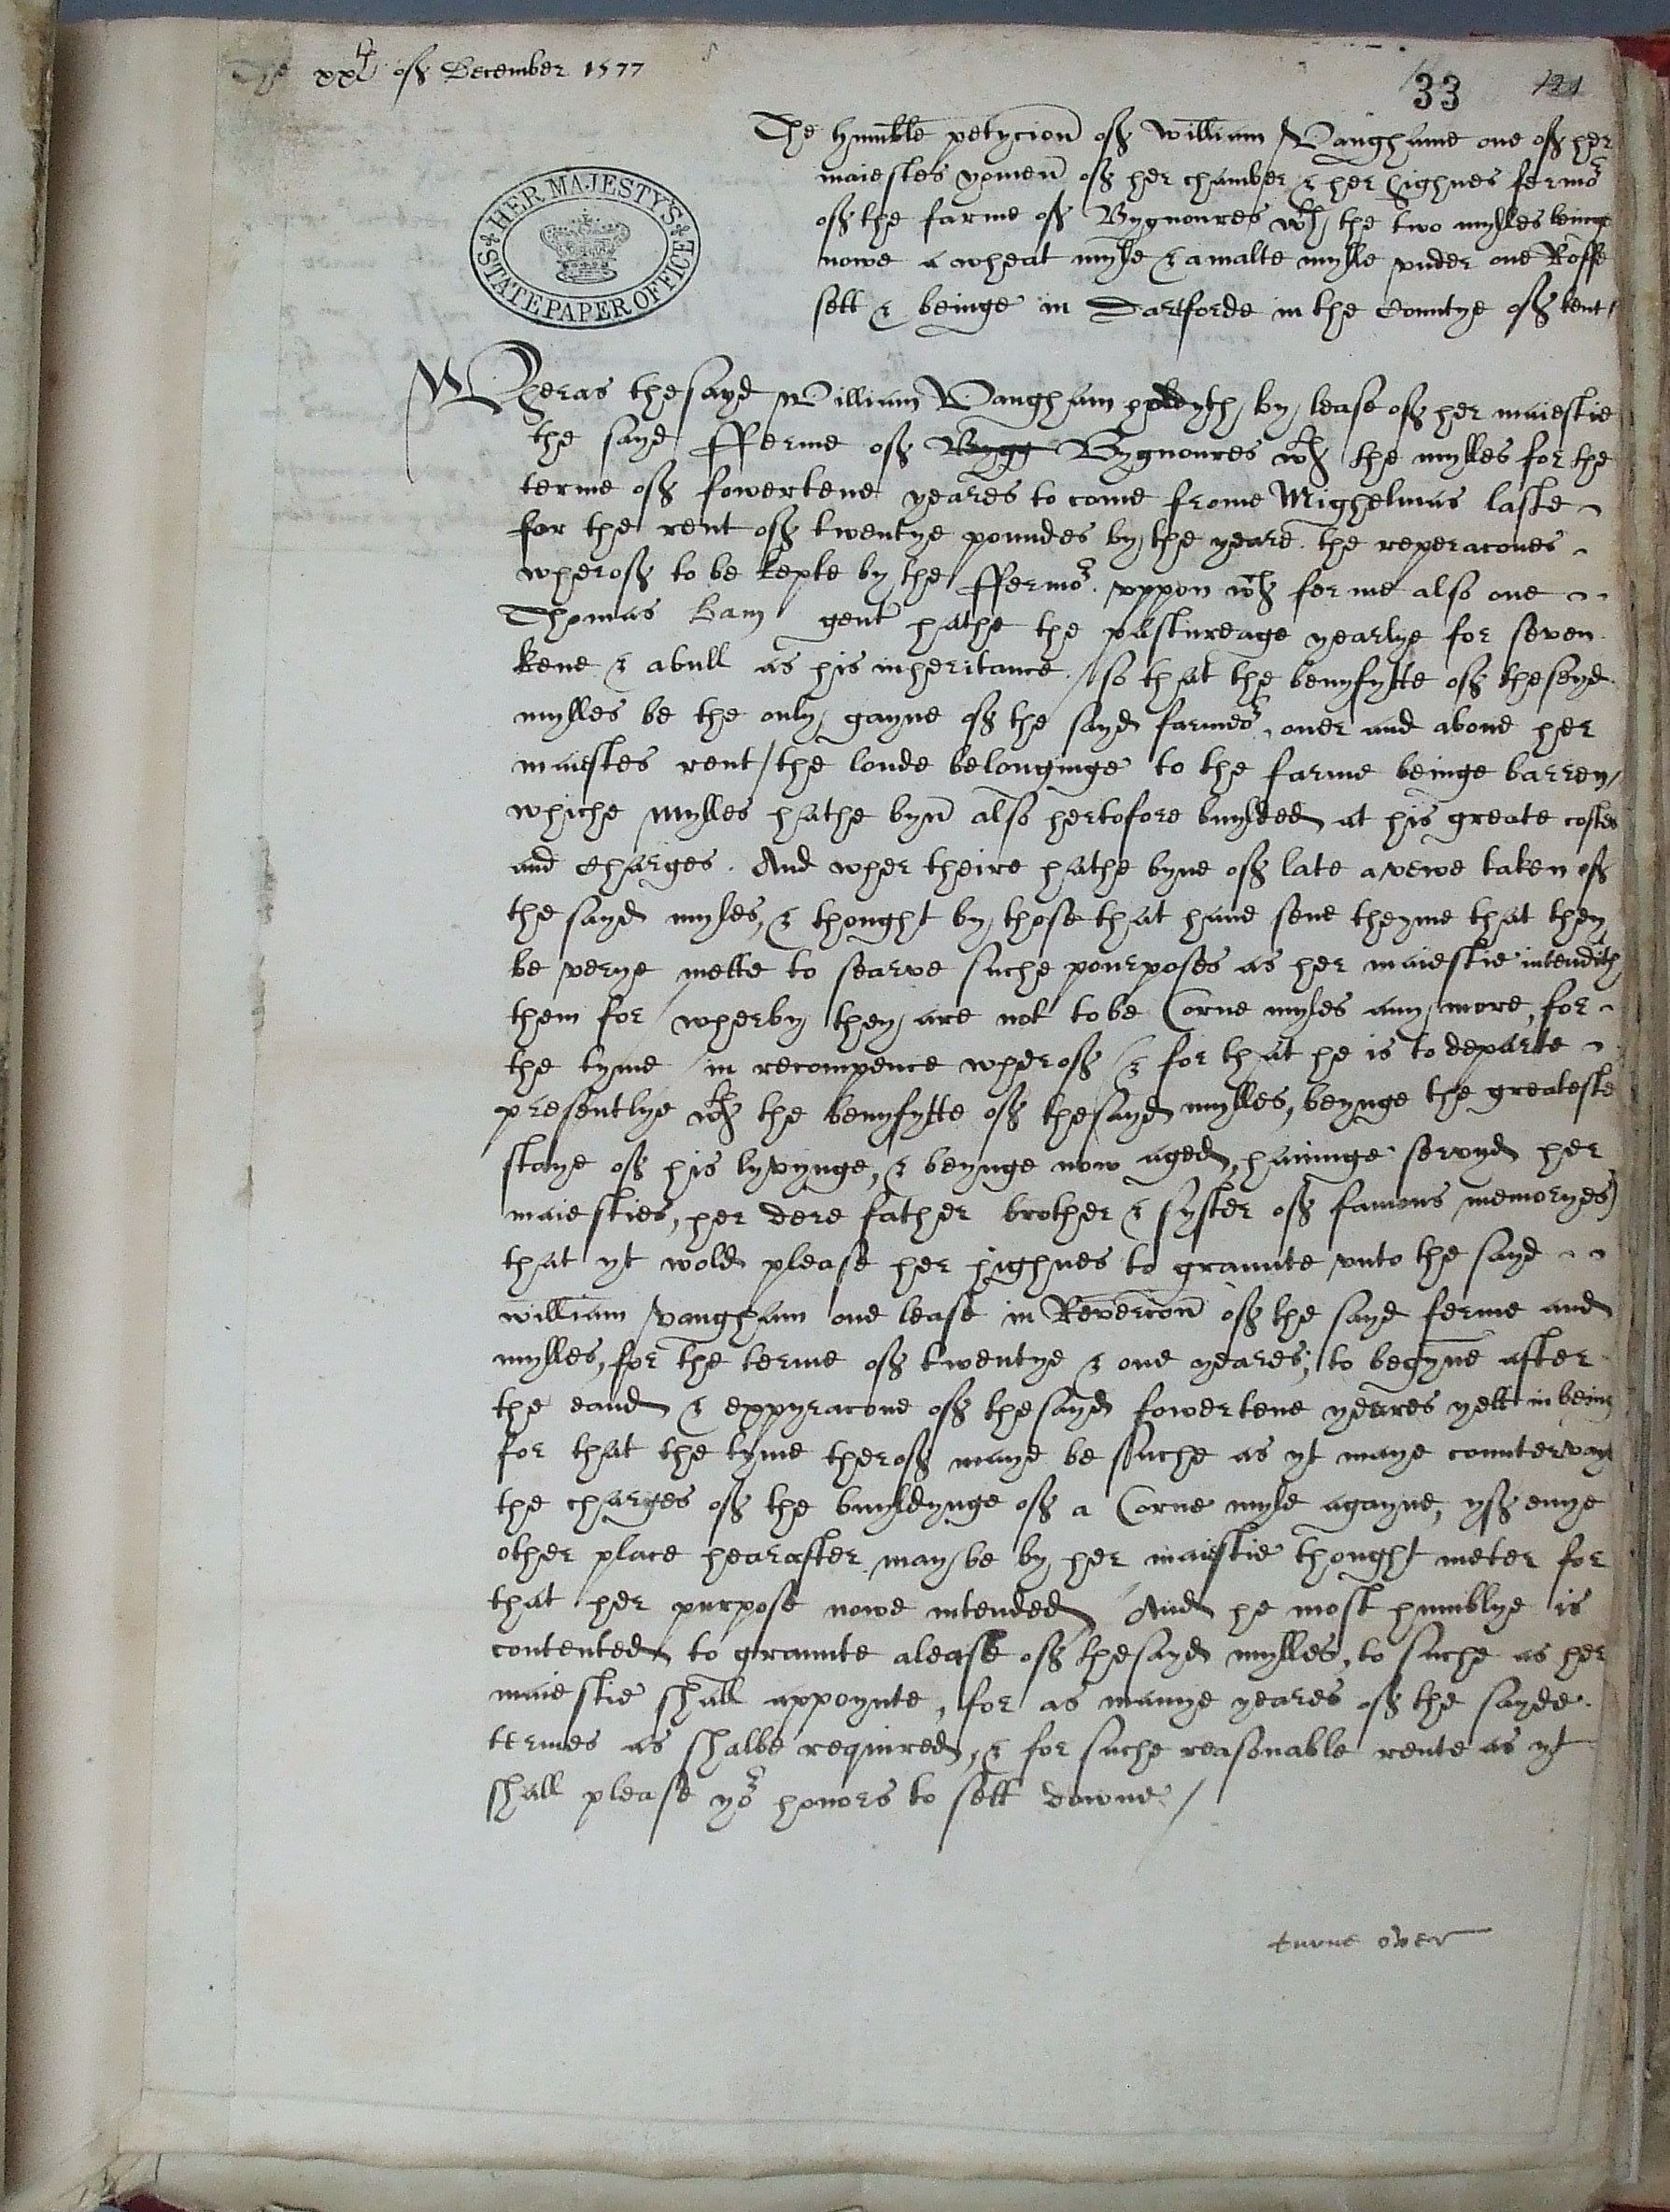 The xxth off December 1577
33 121
The humble petycion off William Vaughame one off her
maiestes yomen off her chamber & her highnes fermor
off the farme off Bygnoures wth the two mylles beinge
nowe a wheat myle & a malte mylle vnder one Roffe
sett & beinge in Dartforde in the Countye off kent /
HER MAJESTY'S
STATE PAPER OFFICE
Wheras the sayd William Vaugham holdyth by lease off her maiestie
the sayd fferme off Bygg Bygnoures wth the mylles for the
terme off fowertene yeares to come frome Mighelmas laste
for the rent off twentye poundes by the yeare. the reperacones
wheroff to be kepte by the ffermor. vppon wch ferme also one
Thomas Bam gent hathe the pastureage yearlye for seven
kene & a bull as his inheritance / so that the benyfytte off the seyd
mylles be the only gayne off the sayd farmeor, ouer and aboue her
maiestes rent / the londe belonginge to the farme beinge barren /
whiche mylles hathe byn also hertofore buylded at his greate costes
and Charges. And wher theire hathe byne off late a vewe taken off
the sayd myles, & thought by those that haue sene theyme that they
be verye mette to searve suche pourposes as her maiestie intendith
them for / wherby they are not to be Corne myles any more, for
the tyme / in recompence wheroff & for that he is to departe
presentlye wth the benyfytte off the sayd mylles, beynge the greateste
staye off his lyvynge, & beynge now aged, hauinge servyd her
maiesties, her dere father brother & syster off famous memoryes)
that yt wold please her highnes to graunte vnto the sayd
william vaugham one lease in Revercion off the sayd ferme and
mylles, for the terme off twentye & one yeares, to begynne after
the eand & expyracone off the sayd fowertene yeares yett in being
for that the tyme theroff maye be suche as yt maye countervay
the charges off the buyldynge off a Corne myle agayne, yff enye
other place hearafter may be by her maiestie thought meter for
that her purpose nowe intended And he most humblye is
contented to graunte a lease off the sayd mylles, to suche as her
maiestie shall appoynte, for as manye yeares off the sayde
termes as shalbe required, & for suche reasonable rente as yt
shall please yor honors to sett downe /
turne over